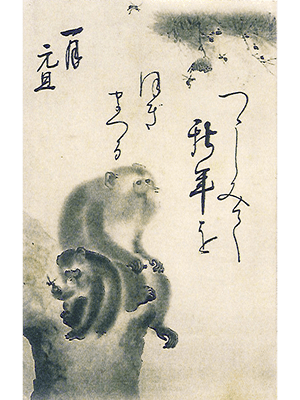 つゝしみて
新年を
ほぎ
まつる
一月
元旦